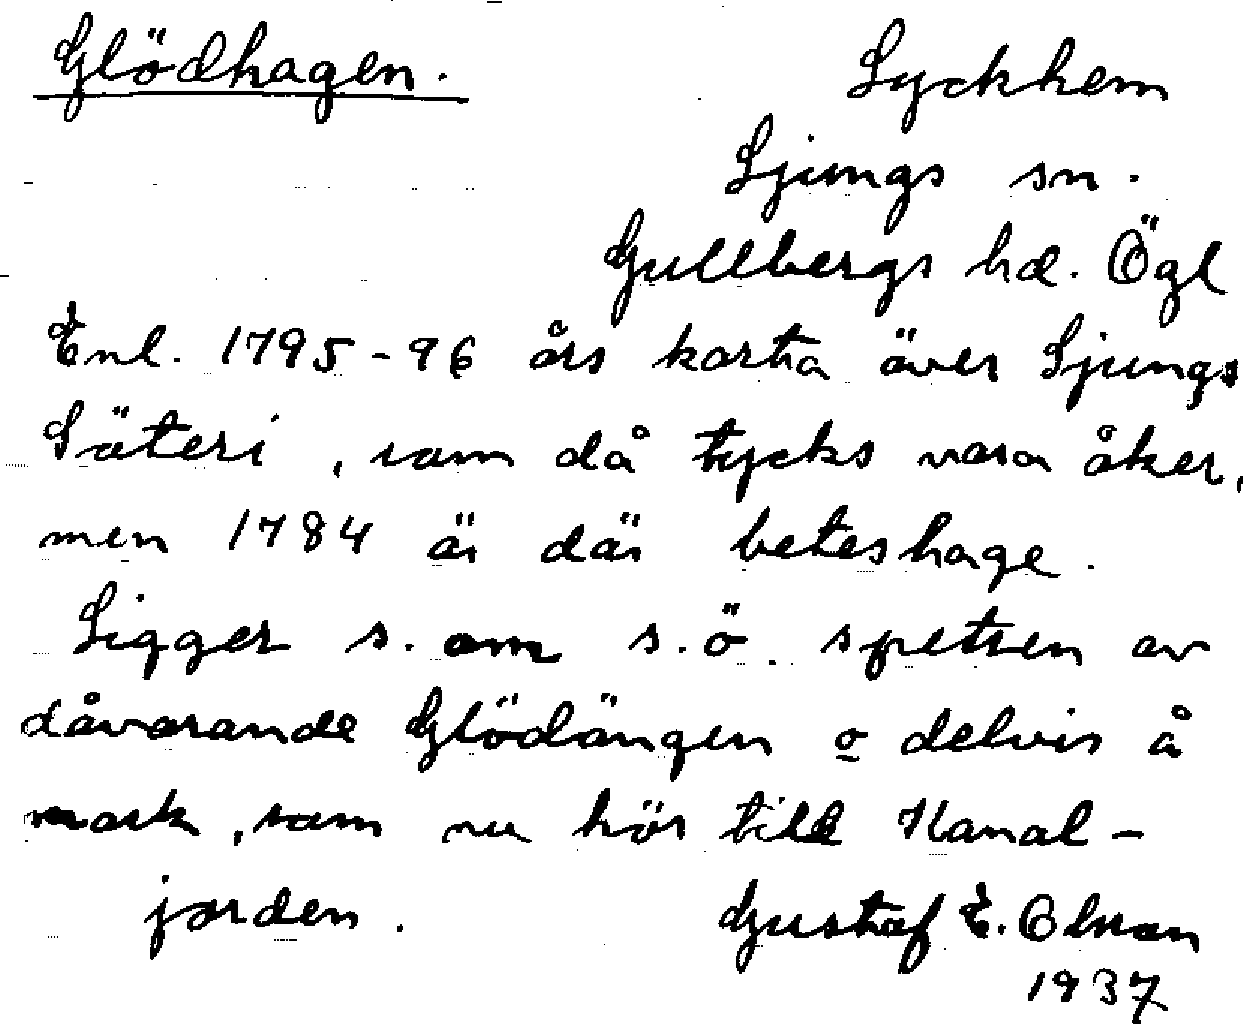 Glödhagen.
Lyckhem
Ljungs sn.
Gullbergs hd. Ögl
Enl. 1795-96 års karta över Ljungs
Säteri, som då tycks vara åker,
men 1784 är där beteshage.
Ligger s. om s.ö. spetsen av
dåvarande Glödängen o delvis å
mark, som nu hör till Kanal-
jorden.
Gustaf E. Olsson
1937